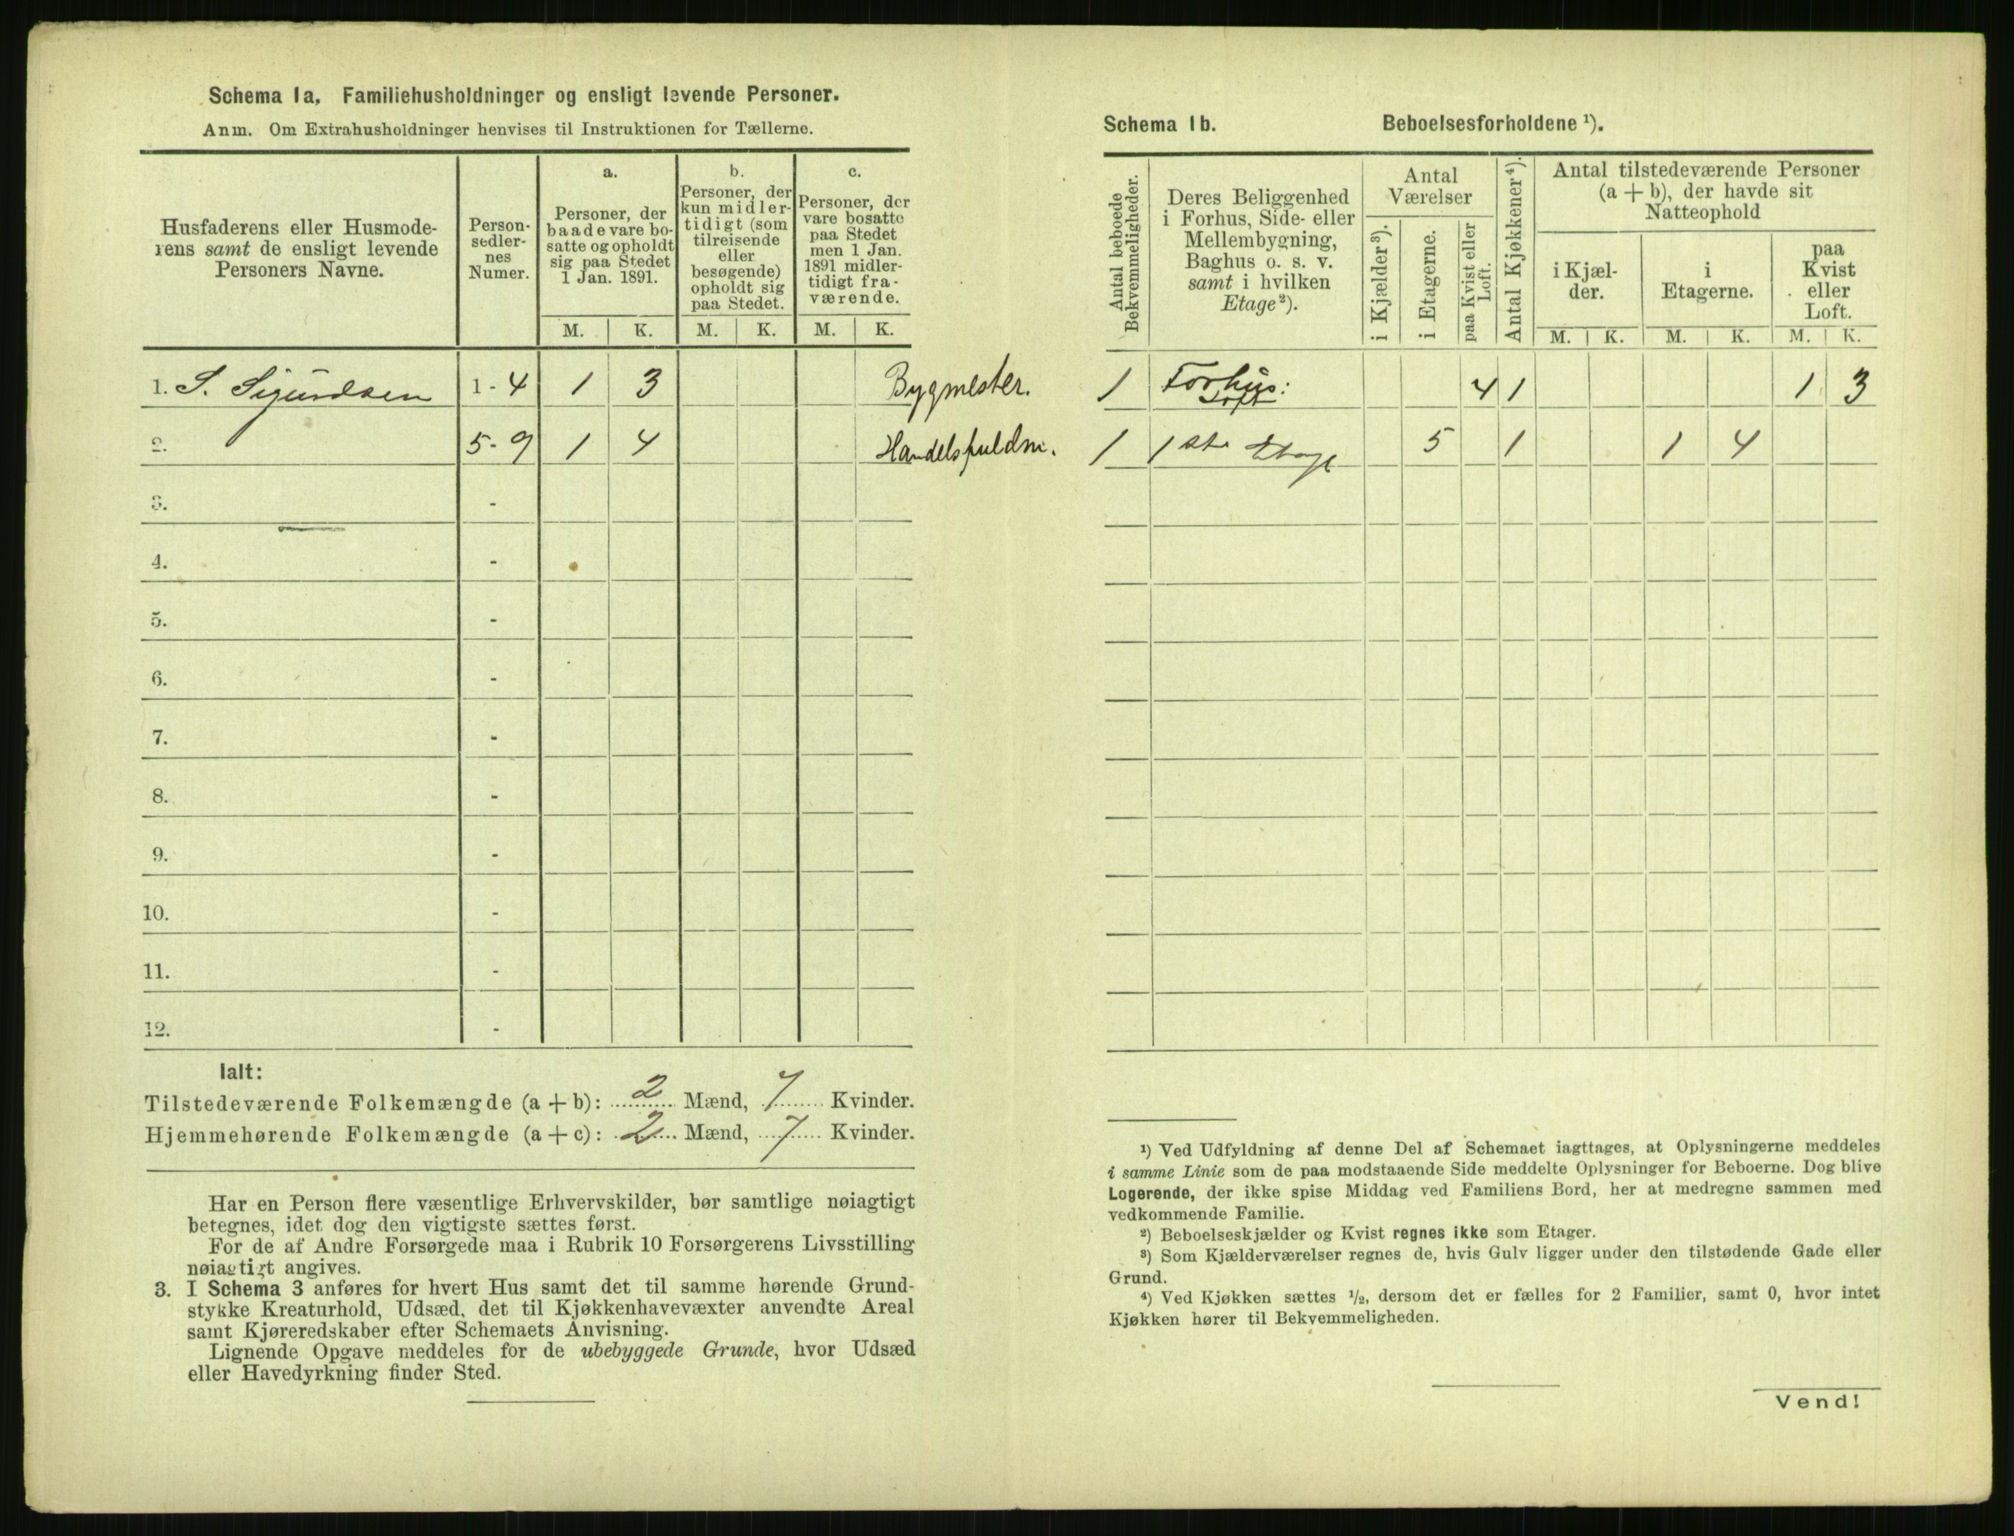 Schema 1a. Familiehusholdninger og ensligt levende Personer.
Anm. Om Extrahusholdninger henvises til Instruktionen for Tællerne.
Husfaderens eller Husmode-
rens samt de ensligt levende
Personers Navne.
Person-
sedler-
nes
Numer.
a.
Personer, der
baade vare bo-
satte og opholdt
sig paa Stedet
1 Jan. 1891.
b.
Personer, der
kun midler-
tidigt (som
tilreisende
eller
besøgende)
opholdt sig
paa Stedet.
c.
Personer, der
vare bosatte
paa Stedet
men 1 Jan.
1891 midler-
tidigt fra-
værende.
M. K. M. K. M. K.
1. S. Sigurdsen 1 - 4 1 3 Bygmester.
2. 5 - 9 1 4
3. -
4. -
5. -
6. -
7. -
8. -
9. -
10. -
11. -
12. -
Ialt:
Tilstedeværende Folkemængde (a + b): 2 Mænd, 7 Kvinder.
Hjemmehørende Folkemængde (a + c): 2 Mænd, 7 Kvinder.
Har en Person flere væsentlige Erhvervskilder, bør samtlige nøiagtigt
betegnes, idet dog den vigtigste sættes først.
For de af Andre Forsørgede maa i Rubrik 10 Forsørgerens Livsstilling
nøiagtigt angives.
3. I Schema 3 anføres for hvert Hus samt det til samme hørende Grund-
stykke Kreaturhold, Udsæd, det til Kjøkkenhavevæxter anvendte Areal
samt Kjøreredskaber efter Schemaets Anvisning.
Lignende Opgave meddeles for de ubebyggede Grunde, hvor Udsæd
eller Havedyrkning finder Sted.
Schema 1b. Beboelsesforholdene ¹).
Antal beboede
Bekvemmeligheder.
Deres Beliggenhed
i Forhus, Side- eller
Mellembygning,
Baghus o. s. v.
samt i hvilken
Etage²).
Antal
Værelser
i Kjælder³).
i Etagerne.
paa Kvist eller
Loft.
Antal Kjøkkener⁴).
Antal tilstedeværende Personer
(a + b), der havde sit
Natteophold
i Kjæl-
der.
i
Etagerne.
paa
Kvist
eller
Loft.
M. K. M. K. M. K.
1 Forhus: 4 1 1 3
Loft
1 1ste Etage 5 1 1 4
¹) Ved Udfyldning af denne Del af Schemaet iagttages, at Oplysningerne meddeles
i samme Linie som de paa modstaaende Side meddelte Oplysninger for Beboerne. Dog blive
Logerende, der ikke spise Middag ved Familiens Bord, her at medregne sammen med
vedkommende Familie.
²) Beboelseskjælder og Kvist regnes ikke som Etager.
³) Som Kjælderværelser regnes de, hvis Gulv ligger under den tilstødende Gade eller
Grund.
⁴) Ved Kjøkken sættes ½, dersom det er fælles for 2 Familier, samt 0, hvor intet
Kjøkken hører til Bekvemmeligheden.
Vend!